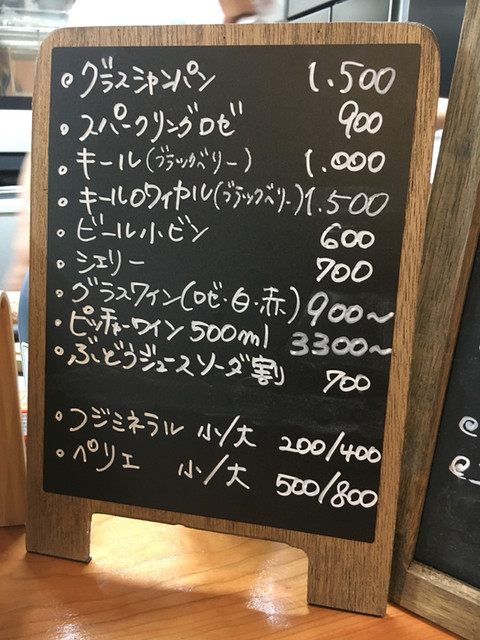 ・グラスシャンパン 1.500
・スパークリングロゼ 900
・キール(ブラックベリー) 1.000
・キールロワイヤル(ブラックベリー) 1.500
・ビール小ビン 600
・シェリー 700
・グラスワイン(ロゼ・白・赤) 900〜
・ピッチャーワイン 500ml 3300〜
・ぶどうジュースソーダ割 700
・フジミネラル 小/大 200/400
・ペリエ 小/大 500/800